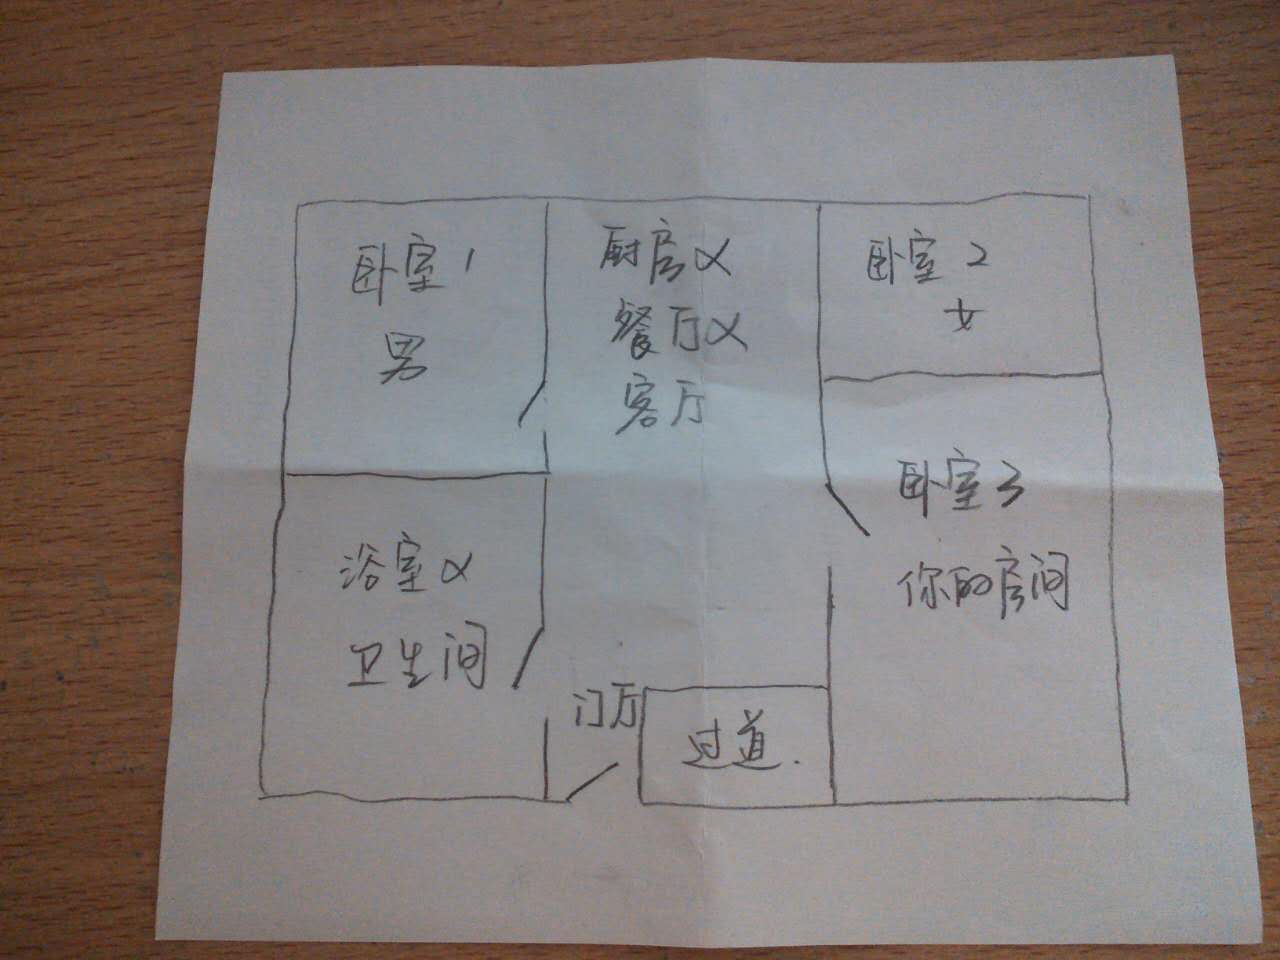 卧室1
男
厨房&
餐厅&
客厅
卧室2
女
卧室3
你的房间
浴室&
卫生间
门厅
过道.